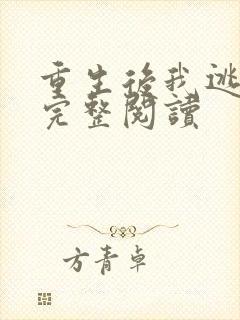 重生後我逃
完整閱讀
方青卓